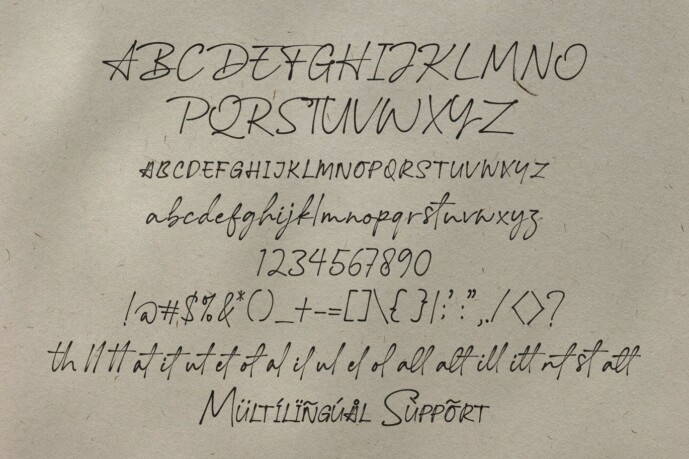 ABCDEFGHIJKLMNO
PQRSTUVWXYZ
ABCDEFGHIJKLMNOPQRSTUVWXYZ
abcdefghijklmnopqrstuvwxyz
1234567890
!@#$%&*()_+-=[]\{}|;':",./<>?
th ll tt at it ut et ot al il ul el ol all alt ill itt nt st att
Mültílïñgúål Sùppõrt